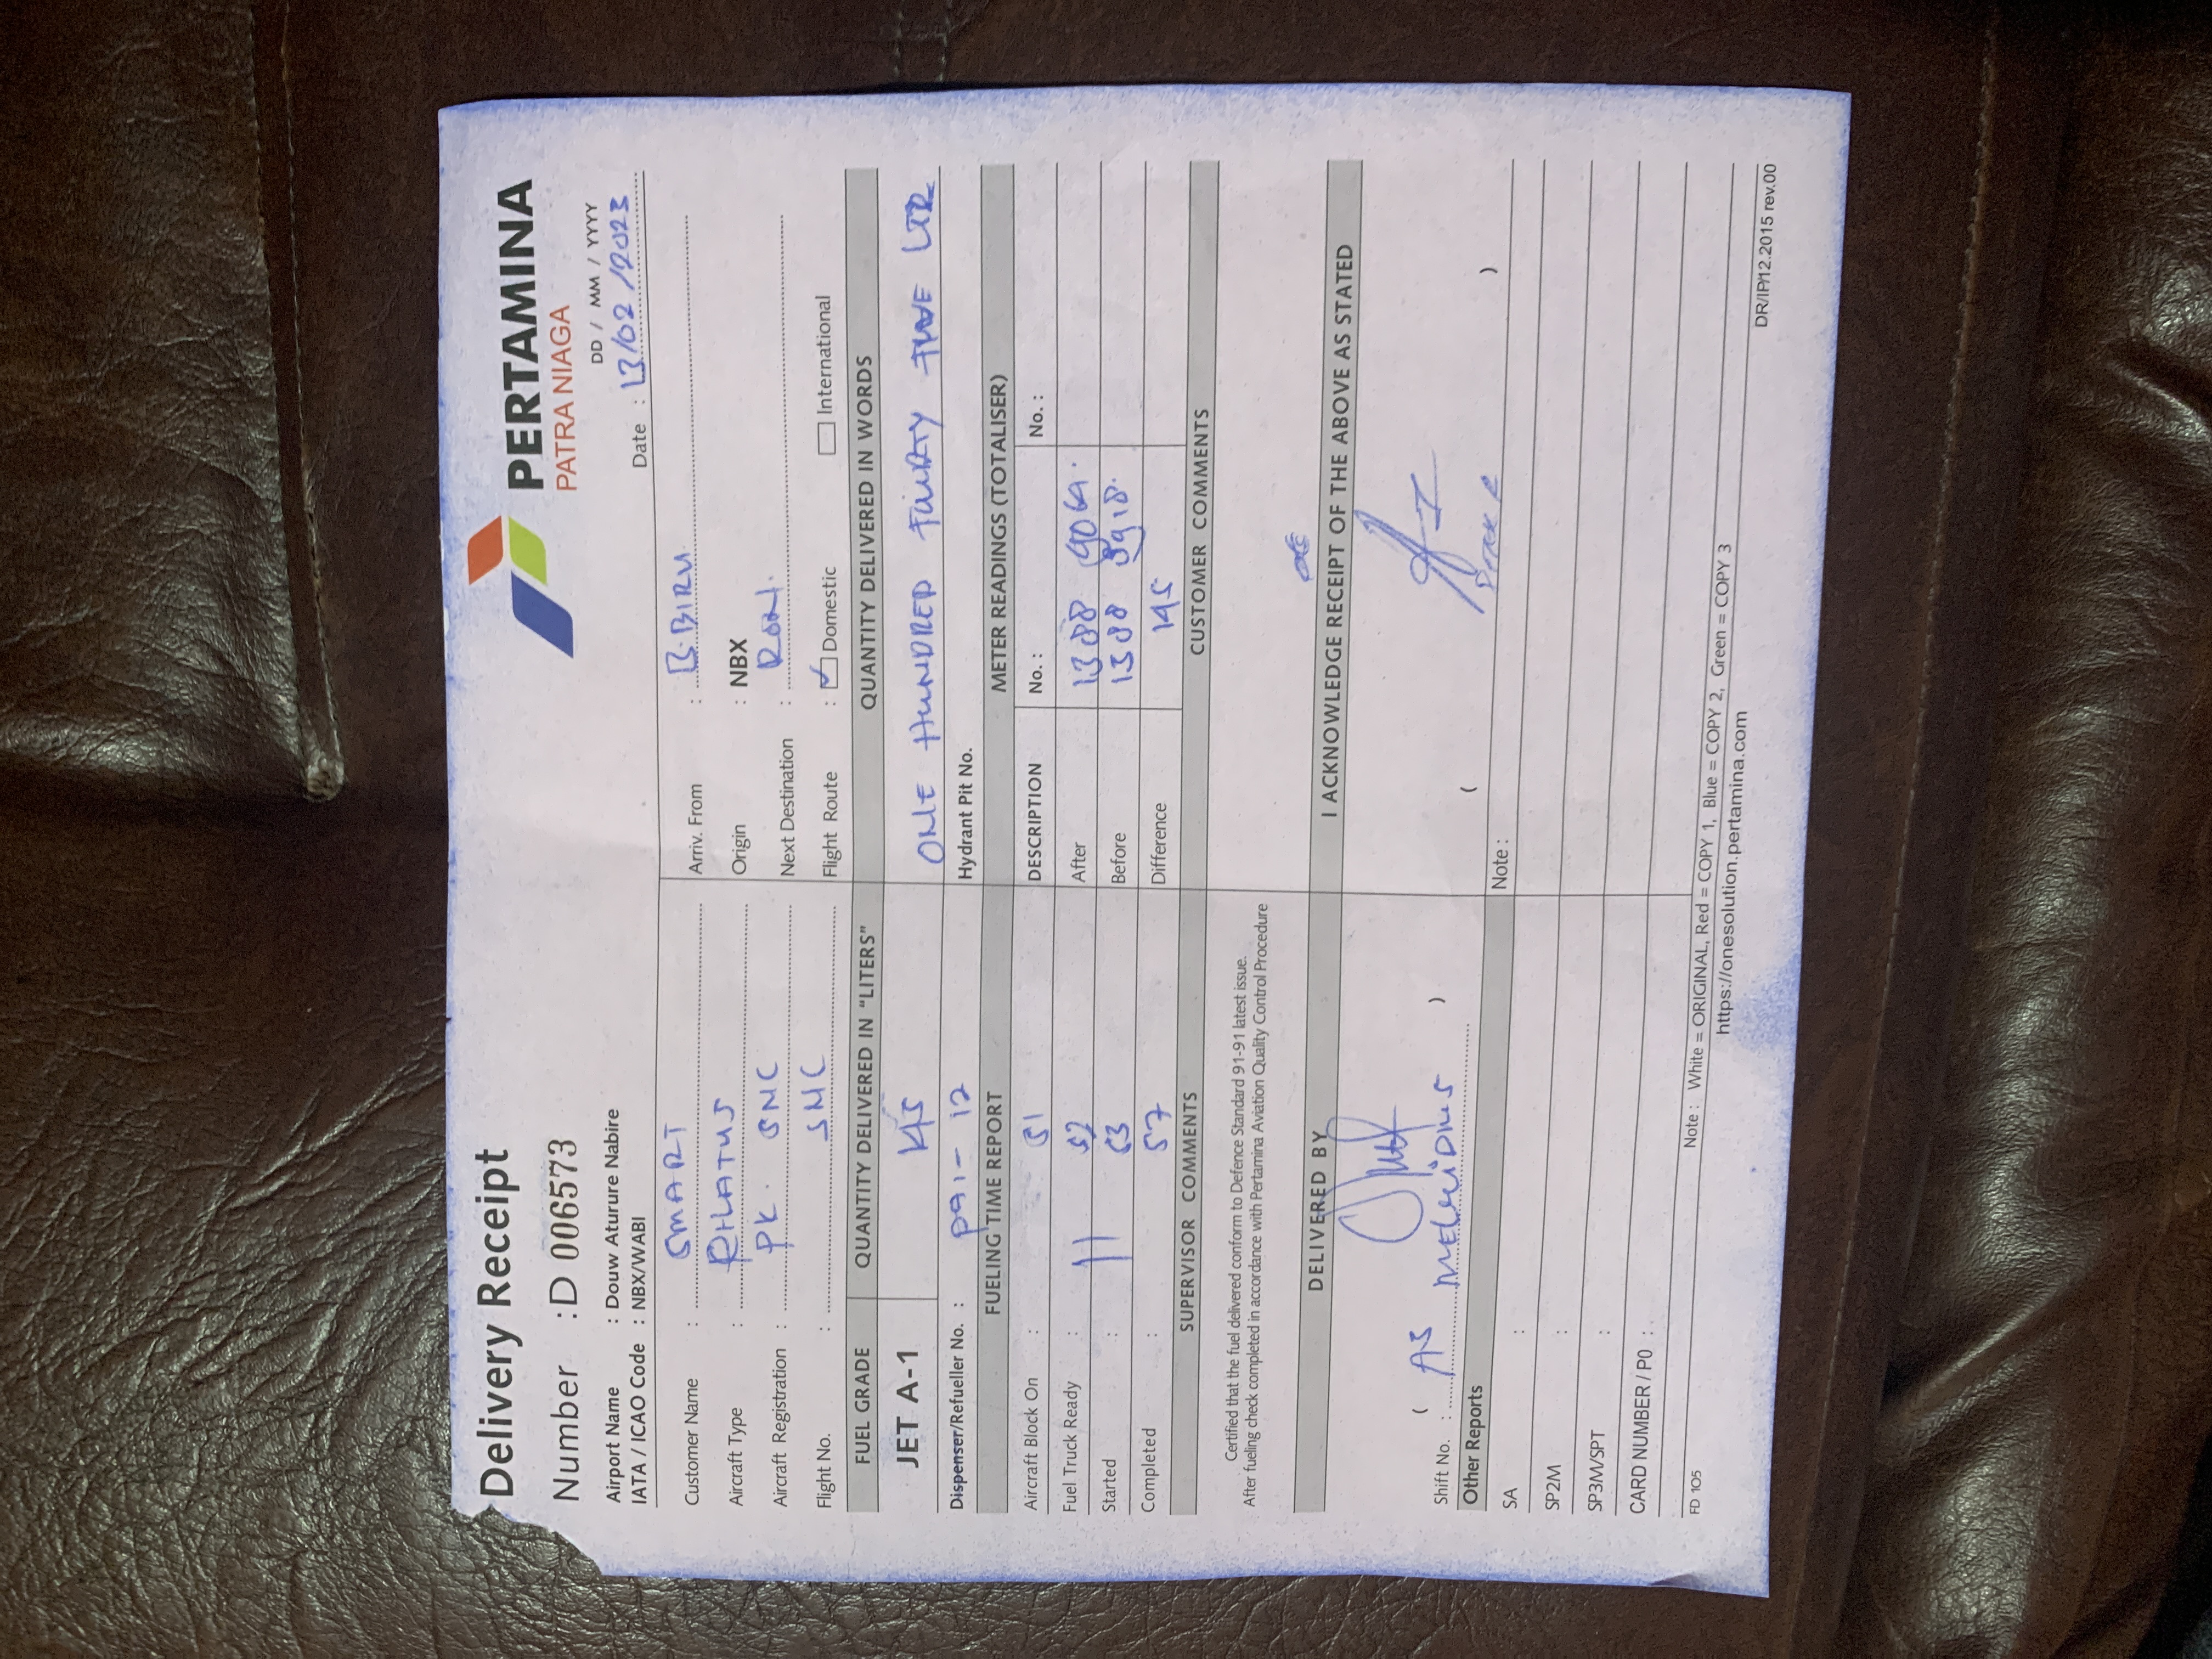 Delivery Receipt
PERTAMINA
PATRA NIAGA
Number : D 006573
DD / MM / YYYY
Airport Name : Douw Aturure Nabire
IATA / ICAO Code : NBX/WABI
Date : 13/02/2023
Customer Name : SMART
Arriv. From : B.BIRU
Aircraft Type : PILATUS
Origin : NBX
Aircraft Registration : PK. SNC
Next Destination :
Flight No. : SNC
Flight Route : ☑ Domestic ☐ International
FUEL GRADE
QUANTITY DELIVERED IN "LITERS"
QUANTITY DELIVERED IN WORDS
JET A-1
145
ONE HUNDRED
LTR
Dispenser/Refueller No. :
Hydrant Pit No.
FUELING TIME REPORT
METER READINGS (TOTALISER)
DESCRIPTION No. : No. :
Aircraft Block On : 51
After 1388
Fuel Truck Ready : 52
Before 1388 8918.
Started : 53
Difference 145
Completed : 57
SUPERVISOR COMMENTS
CUSTOMER COMMENTS
Certified that the fuel delivered conform to Defence Standard 91-91 latest issue.
After fueling check completed in accordance with Pertamina Aviation Quality Control Procedure
DELIVERED BY
I ACKNOWLEDGE RECEIPT OF THE ABOVE AS STATED
( )
( )
Shift No. :
Other Reports
Note :
SA :
SP2M :
SP3M/SPT :
CARD NUMBER / P0 :
FD 105
Note : White = ORIGINAL, Red = COPY 1, Blue = COPY 2, Green = COPY 3
https://onesolution.pertamina.com
DR/IP/12.2015 rev.00